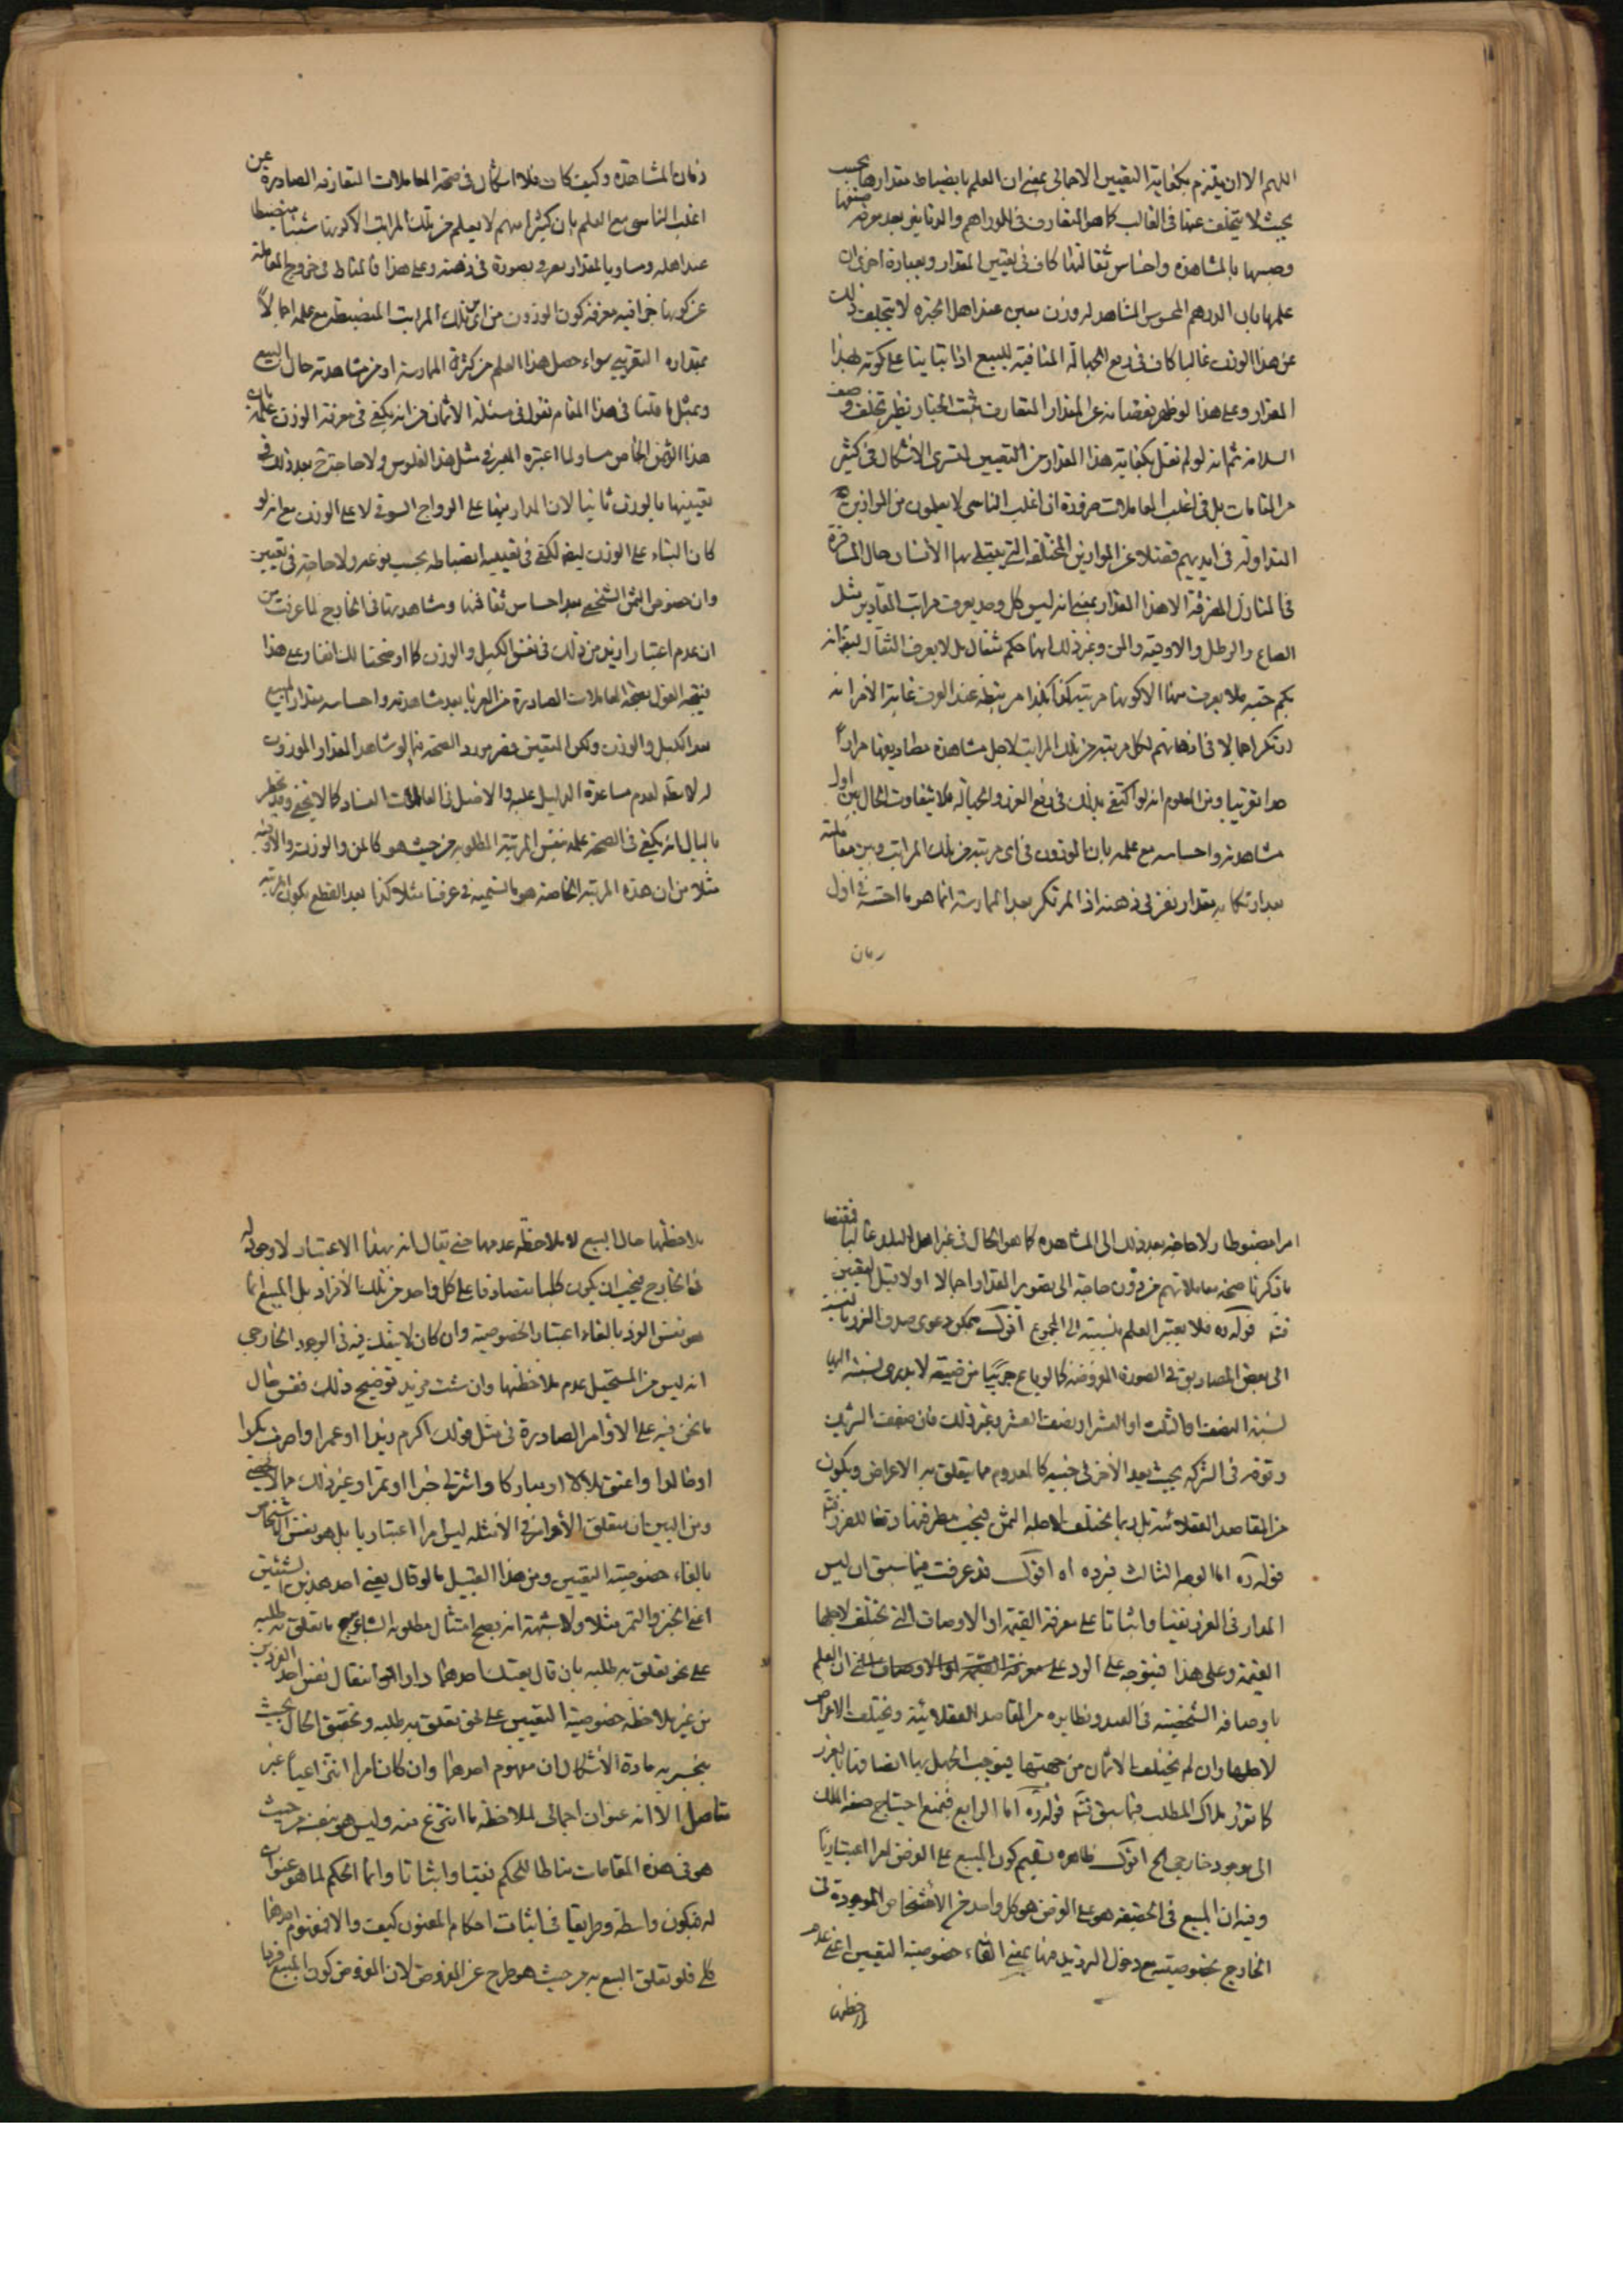 اللهم الا ان يلتزم بكفاية التعيين الاجمالى بمعنى ان العلم بانضباط مقدارها بحسب صنفها
بحيث لا يتخلف عنها فى الغالب كما هو المتعارف فى الدراهم والدنانير بعد معرفة
وصبها بالمشاهدة واحساس ثقالتها كاف فى تعيين المقدار وبعبارة اخرى ان
علمها بان الدرهم المحسوس المشاهد له وزن معين عند اهل الخبرة لا يتخلف ذلك
عن هذا الوزن غالبا كاف فى رفع الجهالة المنافية للبيع اذا تباينا على كونه بهذا
المقدار وعلى هذا لو ظهر نقصانه عن المقدار المتعارف يثبت الخيار نظير تخلف وصف
السلامة ثم انه لو لم نقل بكفاية هذا المقدار من التعيين لسرى الاشكال فى كثير
من المقامات بل فى اغلب المعاملات ضرورة ان اغلب الناس لا يعلمون من الموازين
المتداولة فى ايديهم فضلا عن الموازين المختلفة التى يبتلى بها الانسان حال المسافرة
فى المنازل المتفرقة الا هذا المقدار بمعنى انه ليس كل احد يعرف مراتب المقادير مثل
الصاع والرطل والاوقية والمن وغير ذلك انها كم مثقال بل لا يعرف المثقال ايضا انه
بكم حبة فلا يعرف منها الا كونها مرتبة كذا كذا مرتبطة عند العرف غاية الامر انه
ارتكز اجمالا فى اذهانهم لكل مرتبة من تلك المراتب لاجل مشاهدة مصاديقها مرارا
حد تقريبا ومن المعلوم انه لو اكتفى بذلك فى رفع الغرر والجهالة فلا يتفاوت الحال بين اول
مشاهدته واحساسه مع علمه بان الموزون فى اى مرتبة من تلك المراتب وبين معاملته
بعد ارتكابه بمقدار تقريبى فى ذهنه اذ المرتكز بعد الممارسة انما هو ما احسه فى اول
زمان
زمان المشاهدة وكيف كان فلا اشكال فى صحة المعاملات المتعارفة الصادرة عن
اغلب الناس مع العلم بان كثيرا منهم لا يعلم من تلك المراتب الا كونها شيئا منضبطا
عند اهله ومساويا لمقدار معروف بصورة فى ذهنه وعلى هذا فالمناط فى خروج المعاملة
عن كونها جزافية معرفة كون الموزون من اى تلك المراتب المنضبطة مع علمه اجمالا
بمقداره التقريبى سواء حصل هذا العلم من كثرة الممارسة او من مشاهدته حال البيع
وبمثل ما قلنا فى هذا المقام نقول فى مسئلة الاثمان من انه يكفى فى معرفة الوزن علمه بان
هذا الثمن الخاص مساو لما اعتبره المعير فى مثل هذا الفلوس ولا حاجة بعد ذلك فى
تعيينها بالوزن ثانيا لان المدار فيها على الرواج السوقى لا على الوزن مع انه لو
كان البناء على الوزن ايضا لكفى فى تعيينه انضباطه بحسب نوعه ولا حاجة فى تعيين
وان خصوص الثمن الشخصى بعد احساس ثقالتها ومشاهدتها فى الخارج لما عرفت من
ان عدم اعتبار ازيد من ذلك فى نفس الكيل والوزن كما اوضحنا لك انفا وعلى هذا
فيتجه القول بصحة المعاملات الصادرة من الغرباء بعد مشاهدته واحساسه مقدار المبيع
بعد الكيل والوزن ولكن المتيقن من مورد الصحة ما لو شاهد المقدار الموزون
له لا مطلقا لعدم مساعدة الدليل عليه والاصل فى المعاملات الفساد كما لا يخفى وقد يخطر
بالبال انه يكفى فى الصحة علمه بنفس المرتبة المطلوبة من حيث هو كالمن والوزنة والاوقية
مثلا من ان هذه المرتبة الخاصة هو ما نسميه فى عرفنا مثلا كذا بعد القطع بكون المرتبة
امرا مضبوطا ولا حاجة بعد ذلك الى المشاهدة كما هو الحال فى غير اهل البلد غالبا فمقتضى
ما ذكرنا صحة معاملاتهم من دون حاجة الى تصوير المقدار اجمالا او لا قبل التعيين
فتد قوله ره فلا يعتبر العلم بنسبته الى المجموع اقول يمكن دعوى صدق الغرر بالنسبة
الى بعض المصاديق فى الصورة المفروضة كما لو باع جريبا من ضيعة لا يدرى نسبته اليها
نسبة النصف او الثلث او العشر او نصف العشر وغير ذلك فان ضعف الشريك
وقوته فى الشركة بحيث يعد الآخر فى جنبه كالمعدوم مما يتعلق به الاغراض ويكون
من المقاصد العقلائية بل ربما يختلف لاجله الثمن فيجب معرفتها دفعا للغرر فتد
قوله ره اما الوجه الثالث فيرده اه اقول قد عرفت فيما سبق ان ليس
المدار فى الغرر نفيا واثباتا على معرفة القيمة او الاوصاف التى تختلف لاجلها
القيمة وعلى هذا فيتوجه على الرد على معرفة القيمة او الاوصاف التى ان العلم
باوصافه الشخصية فى العبد ونظايره من المقاصد العقلائية ويختلف الاغراض
لاجلها وان لم يختلف الاثمان من جهتها فيوجب الجهل بها اتصافها بالغرر
كما تقرر ملاك المطلب فيما سبق فتد قوله ره اما الرابع فبمنع احتياج صفة الملك
الى موجود خارجى الخ اقول ظاهره تسليم كون المبيع على الفرض امرا اعتباريا
وفيه ان المبيع فى الحقيقة هو على الفرض هو كل واحد من الاشخاص الموجودة فى
الخارج بخصوصيته مع دخول الترديد فيها بمعنى الغاء خصوصية التعيين اعنى عدم
ملاحظتها
ملاحظتها حال البيع لا ملاحظة عدمها حتى يقال انه بهذا الاعتبار لا وجود له
فى الخارج فيجب ان يكون كليا متصادقا على كل واحد من تلك الافراد بل المبيع انما
هو نفس الفرد بالغاء اعتبار الخصوصية وان كان لا ينفك فيه فى الوجود الخارجى
انه ليس من المستحيل عدم ملاحظتها وان شئت مزيد توضيح ذلك فقس حال
ما نحن فيه على الاوامر الصادرة فى مثل قولك اكرم زيدا او عمرا واضرب بكرا
او خالدا واعتق بلالا او مباركا واشتر لى خبزا او تمرا وغير ذلك مما لا يحصى
ومن البين ان متعلق الأوامر فى الامثلة ليس امرا اعتباريا بل هو نفس الاشخاص
بالغاء خصوصية التعيين ومن هذا القبيل ما لو قال بعنى احد هذين الشيئين
اعنى الخبز والتمر مثلا ولا شبهة انه يصح امتثال مطلوبه البايع ما تعلق به طلبه
على نحو تعلق به طلبه بان قال بعتك احدهما واراد انتقال نفس احد الفردين
من غير ملاحظة خصوصية التعيين على نحو تعلق به طلبه وتحقيق الحال بحيث
ينحسم به مادة الأشكال ان مفهوم احدهما وان كان امرا انتزاعيا غير
متاصل الا انه عنوان اجمالى لملاحظة ما انتزع منه وليس هو بنفسه من حيث
هو فى هذه المقامات مناطا للحكم نفيا واثباتا وانما الحكم لما هو عنوان
له فيكون واسطة وطريقا فى اثبات احكام المعنون كيف والا فمفهوم احدهما
كلى فلو تعلق البيع به من حيث هو طرح عن المفروض لان المفروض كون المبيع فردا